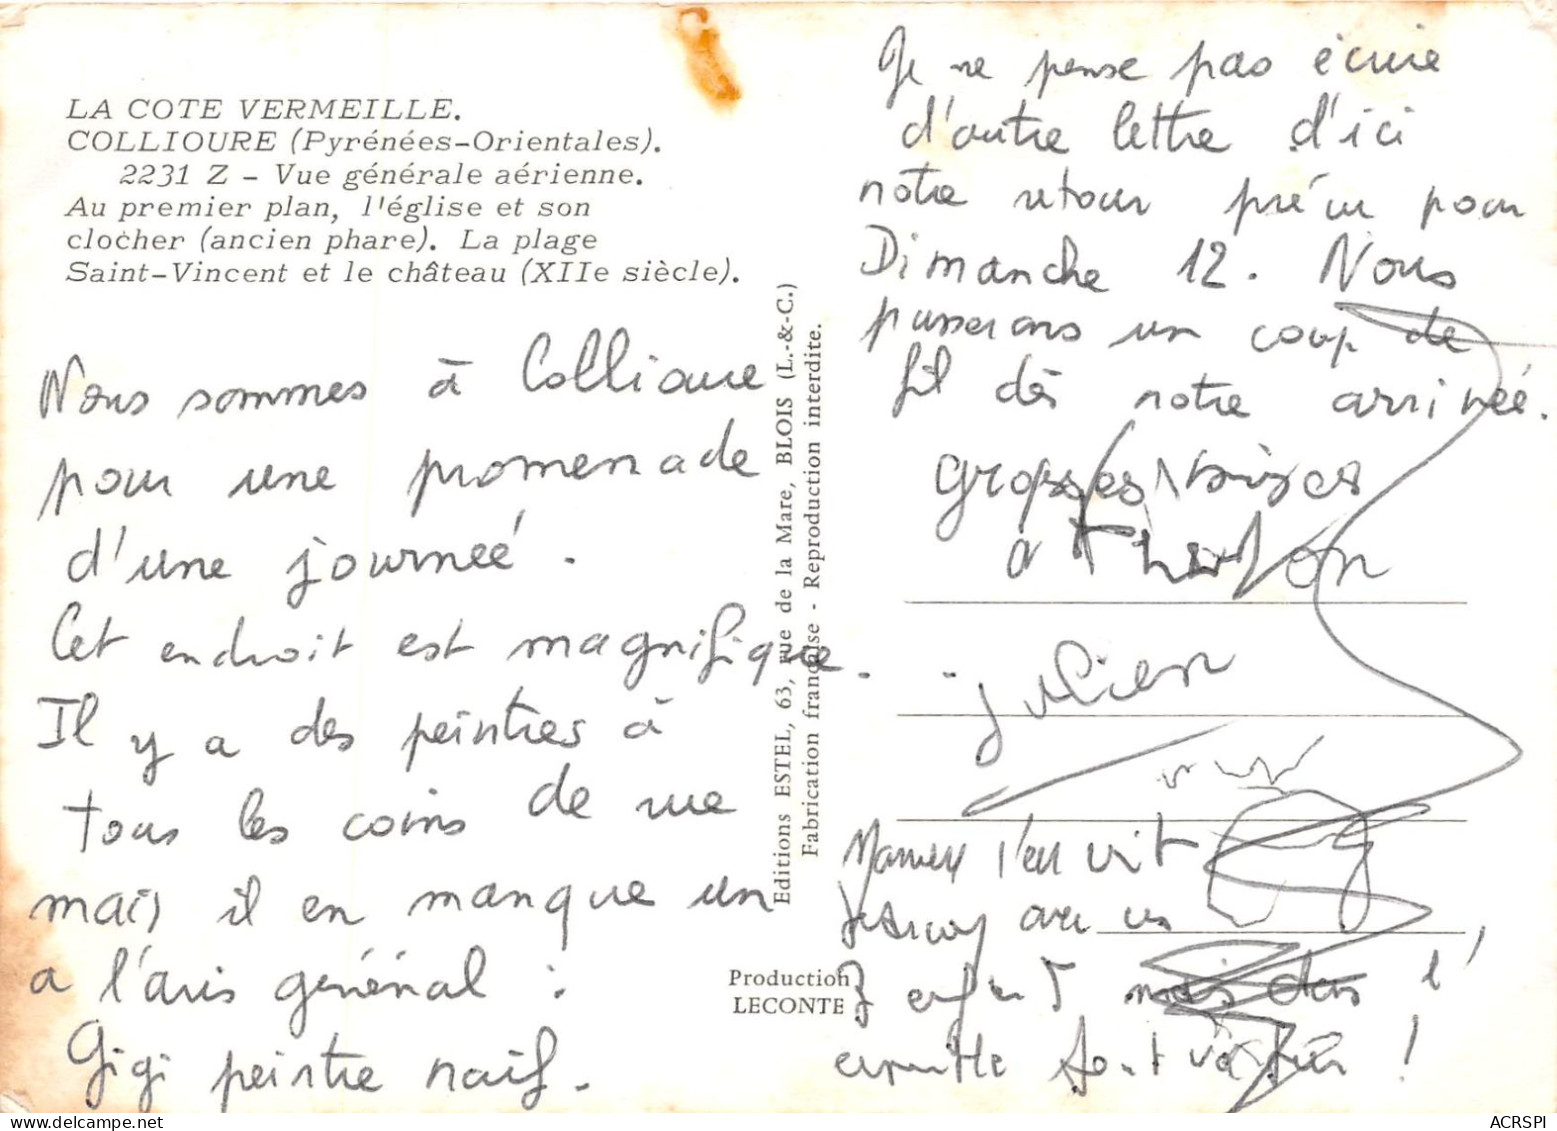 LA COTE VERMEILLE.
COLLIOURE (Pyrénées-Orientales).
2231 Z - Vue générale aérienne.
Au premier plan, l'église et son
clocher (ancien phare). La plage
Saint-Vincent et le château (XIIe siècle).
Nous sommes à Collioure
pour une promenade
d'une journeé.
Cet endroit est magnifique.
Il y a des peintres à
tous les coins de rue
mais il en manque un
a l'avis général :
Gigi peintre naïf.
Editions ESTEL, 63, rue de la Mare, BLOIS (L.-&-C.)
Fabrication française - Reproduction interdite.
Production
LECONTE
Je ne pense pas écrire
d'autre lettre d'ici
notre retour prévu pour
Dimanche 12. Nous
passerons un coup de
fil dès notre arrivéé.
grosses bises
a
Julien
avec
3 mais dans l'
sont
ACRSPI